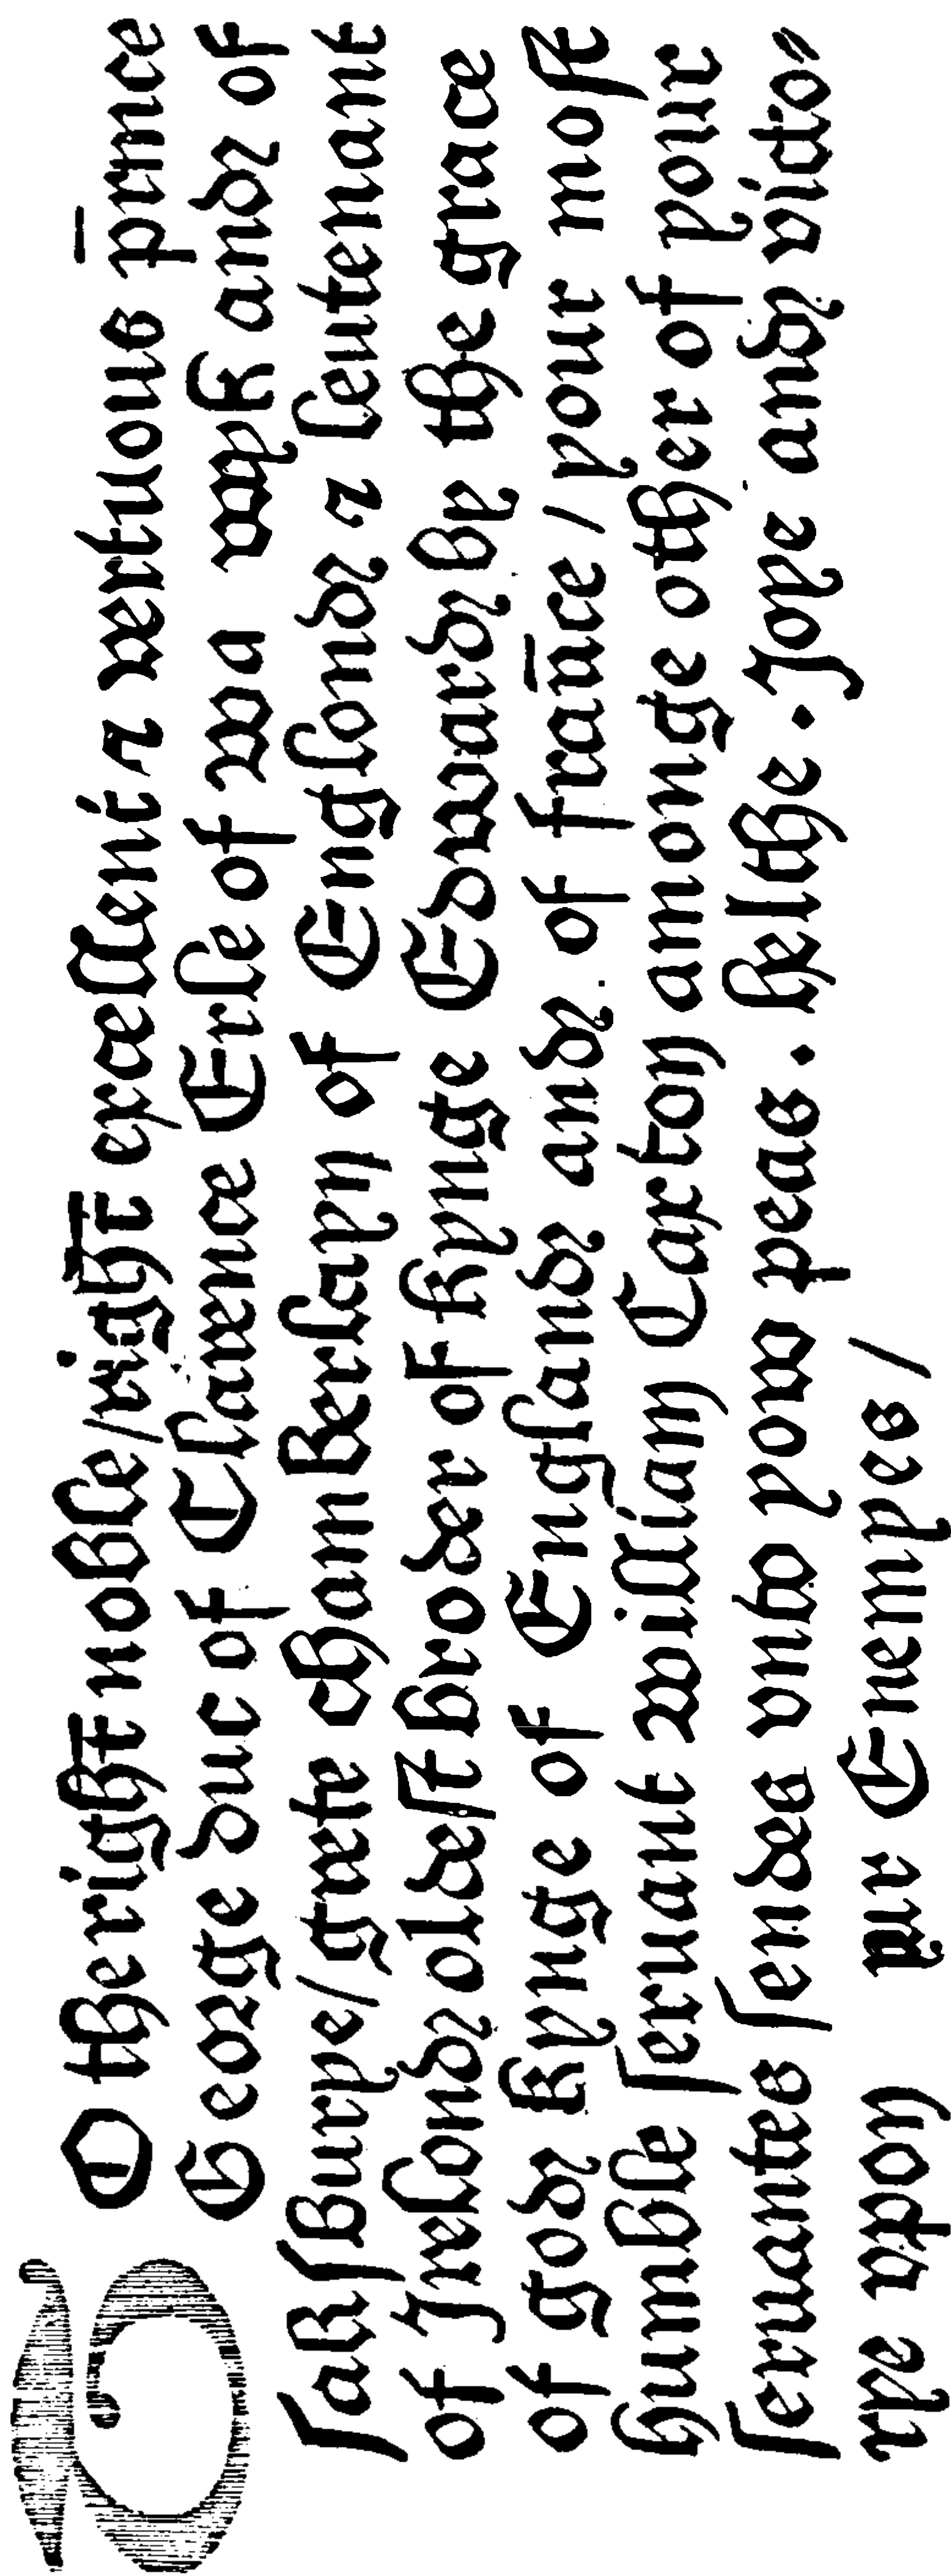 TO the right noble/right excellent ⁊ vertuous p̄rince
George duc of Clarence Erle of warwyk and of
salisburye/grete chamberlayn of Englond ⁊ leutenant
of Irelond oldest broder of kynge Edward by the grace
of god kynge of England and of frāce / your most
humble seruant william Caxton amonge other of your
seruantes sendes vnto yow peas . helthe . Joye and victo⸗
rye vpon your Enemyes /